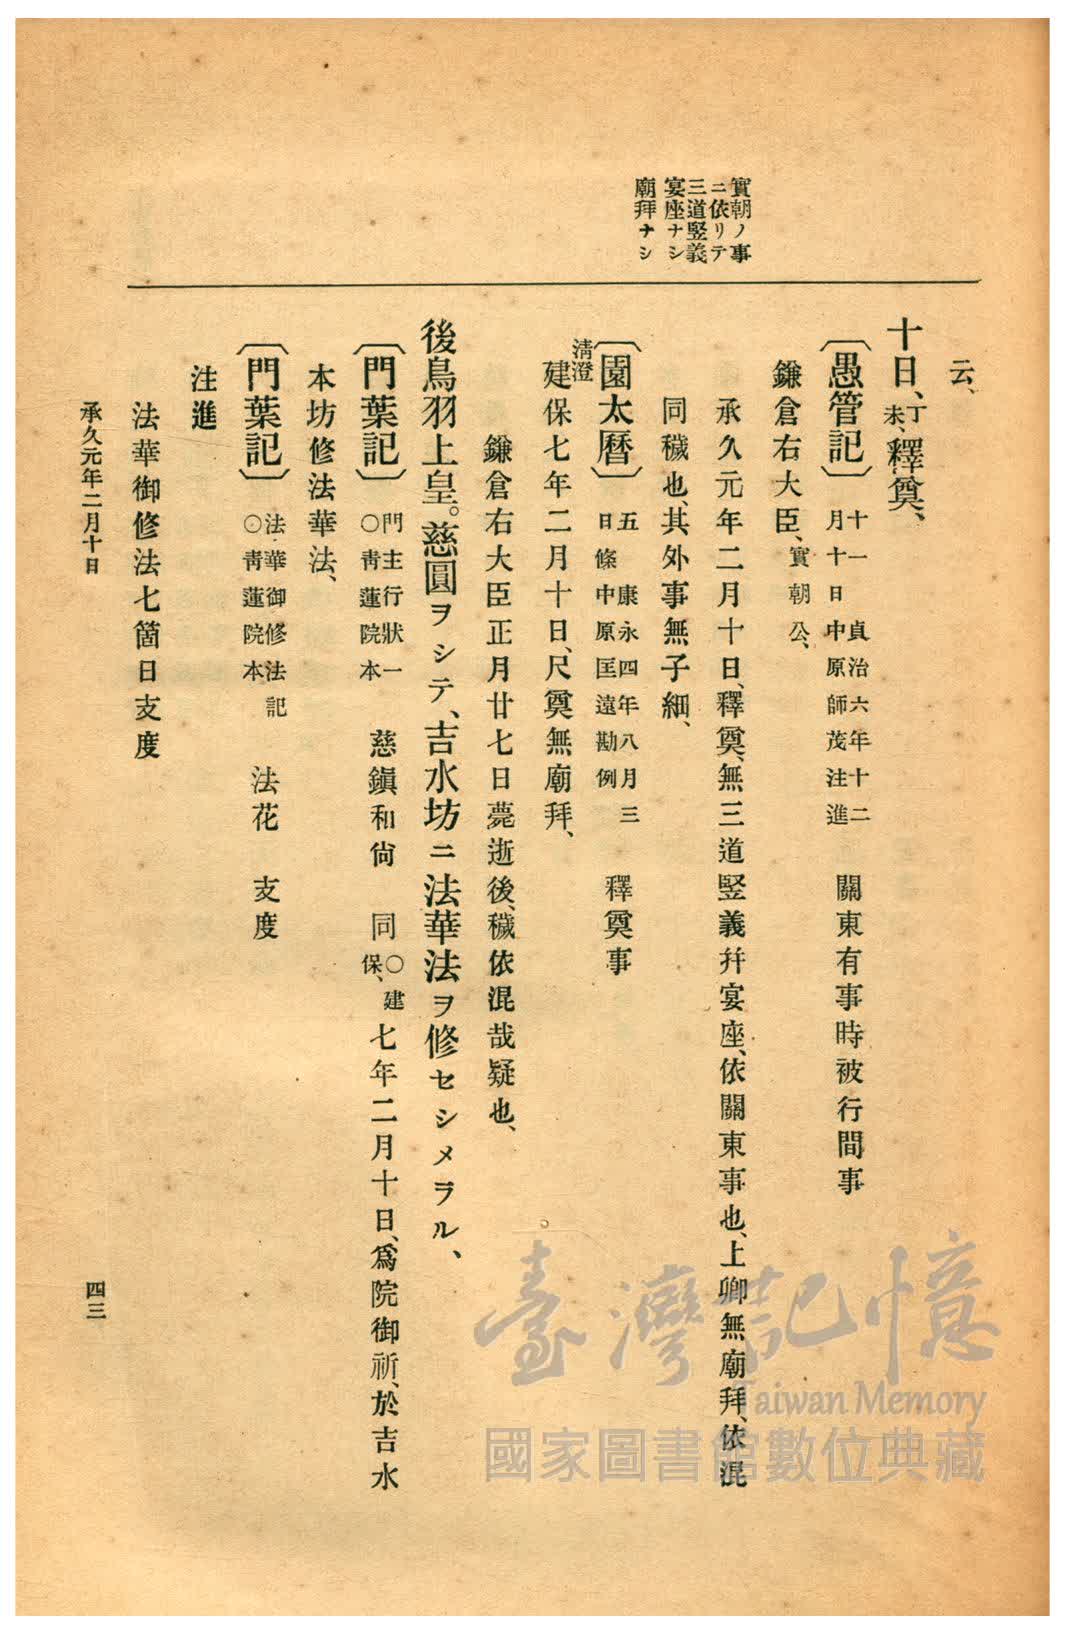 實朝ノ事
ニ依リテ
三道竪義
宴座ナシ
廟拜ナシ
云、
十日、丁未、釋奠、
〔愚管記〕十一 貞治六年十二月十日中原師茂注進 關東有事時被行間事
鎌倉右大臣、實朝公、
承久元年二月十日、釋奠、無三道竪義幷宴座、依關東事也、上卿無廟拜、依混
同穢也、其外事無子細、
〔園太曆〕五 康永四年八月三日條中原匡遠勘例 釋奠事
清澄
建保七年二月十日、尺奠無廟拜、
鎌倉右大臣正月廿七日薨逝後、穢依混哉疑也、
後鳥羽上皇。慈圓ヲシテ、吉水坊ニ法華法ヲ修セシメラル、
〔門葉記〕門主行狀一〇靑蓮院本 慈鎭和尙 同〇建保、七年二月十日、爲院御祈、於吉水
本坊修法華法、
〔門葉記〕法華御修法記〇靑蓮院本 法花 支度
注進
法華御修法七箇日支度
承久元年二月十日
四三
臺灣記憶
Taiwan Memory
國家圖書館數位典藏